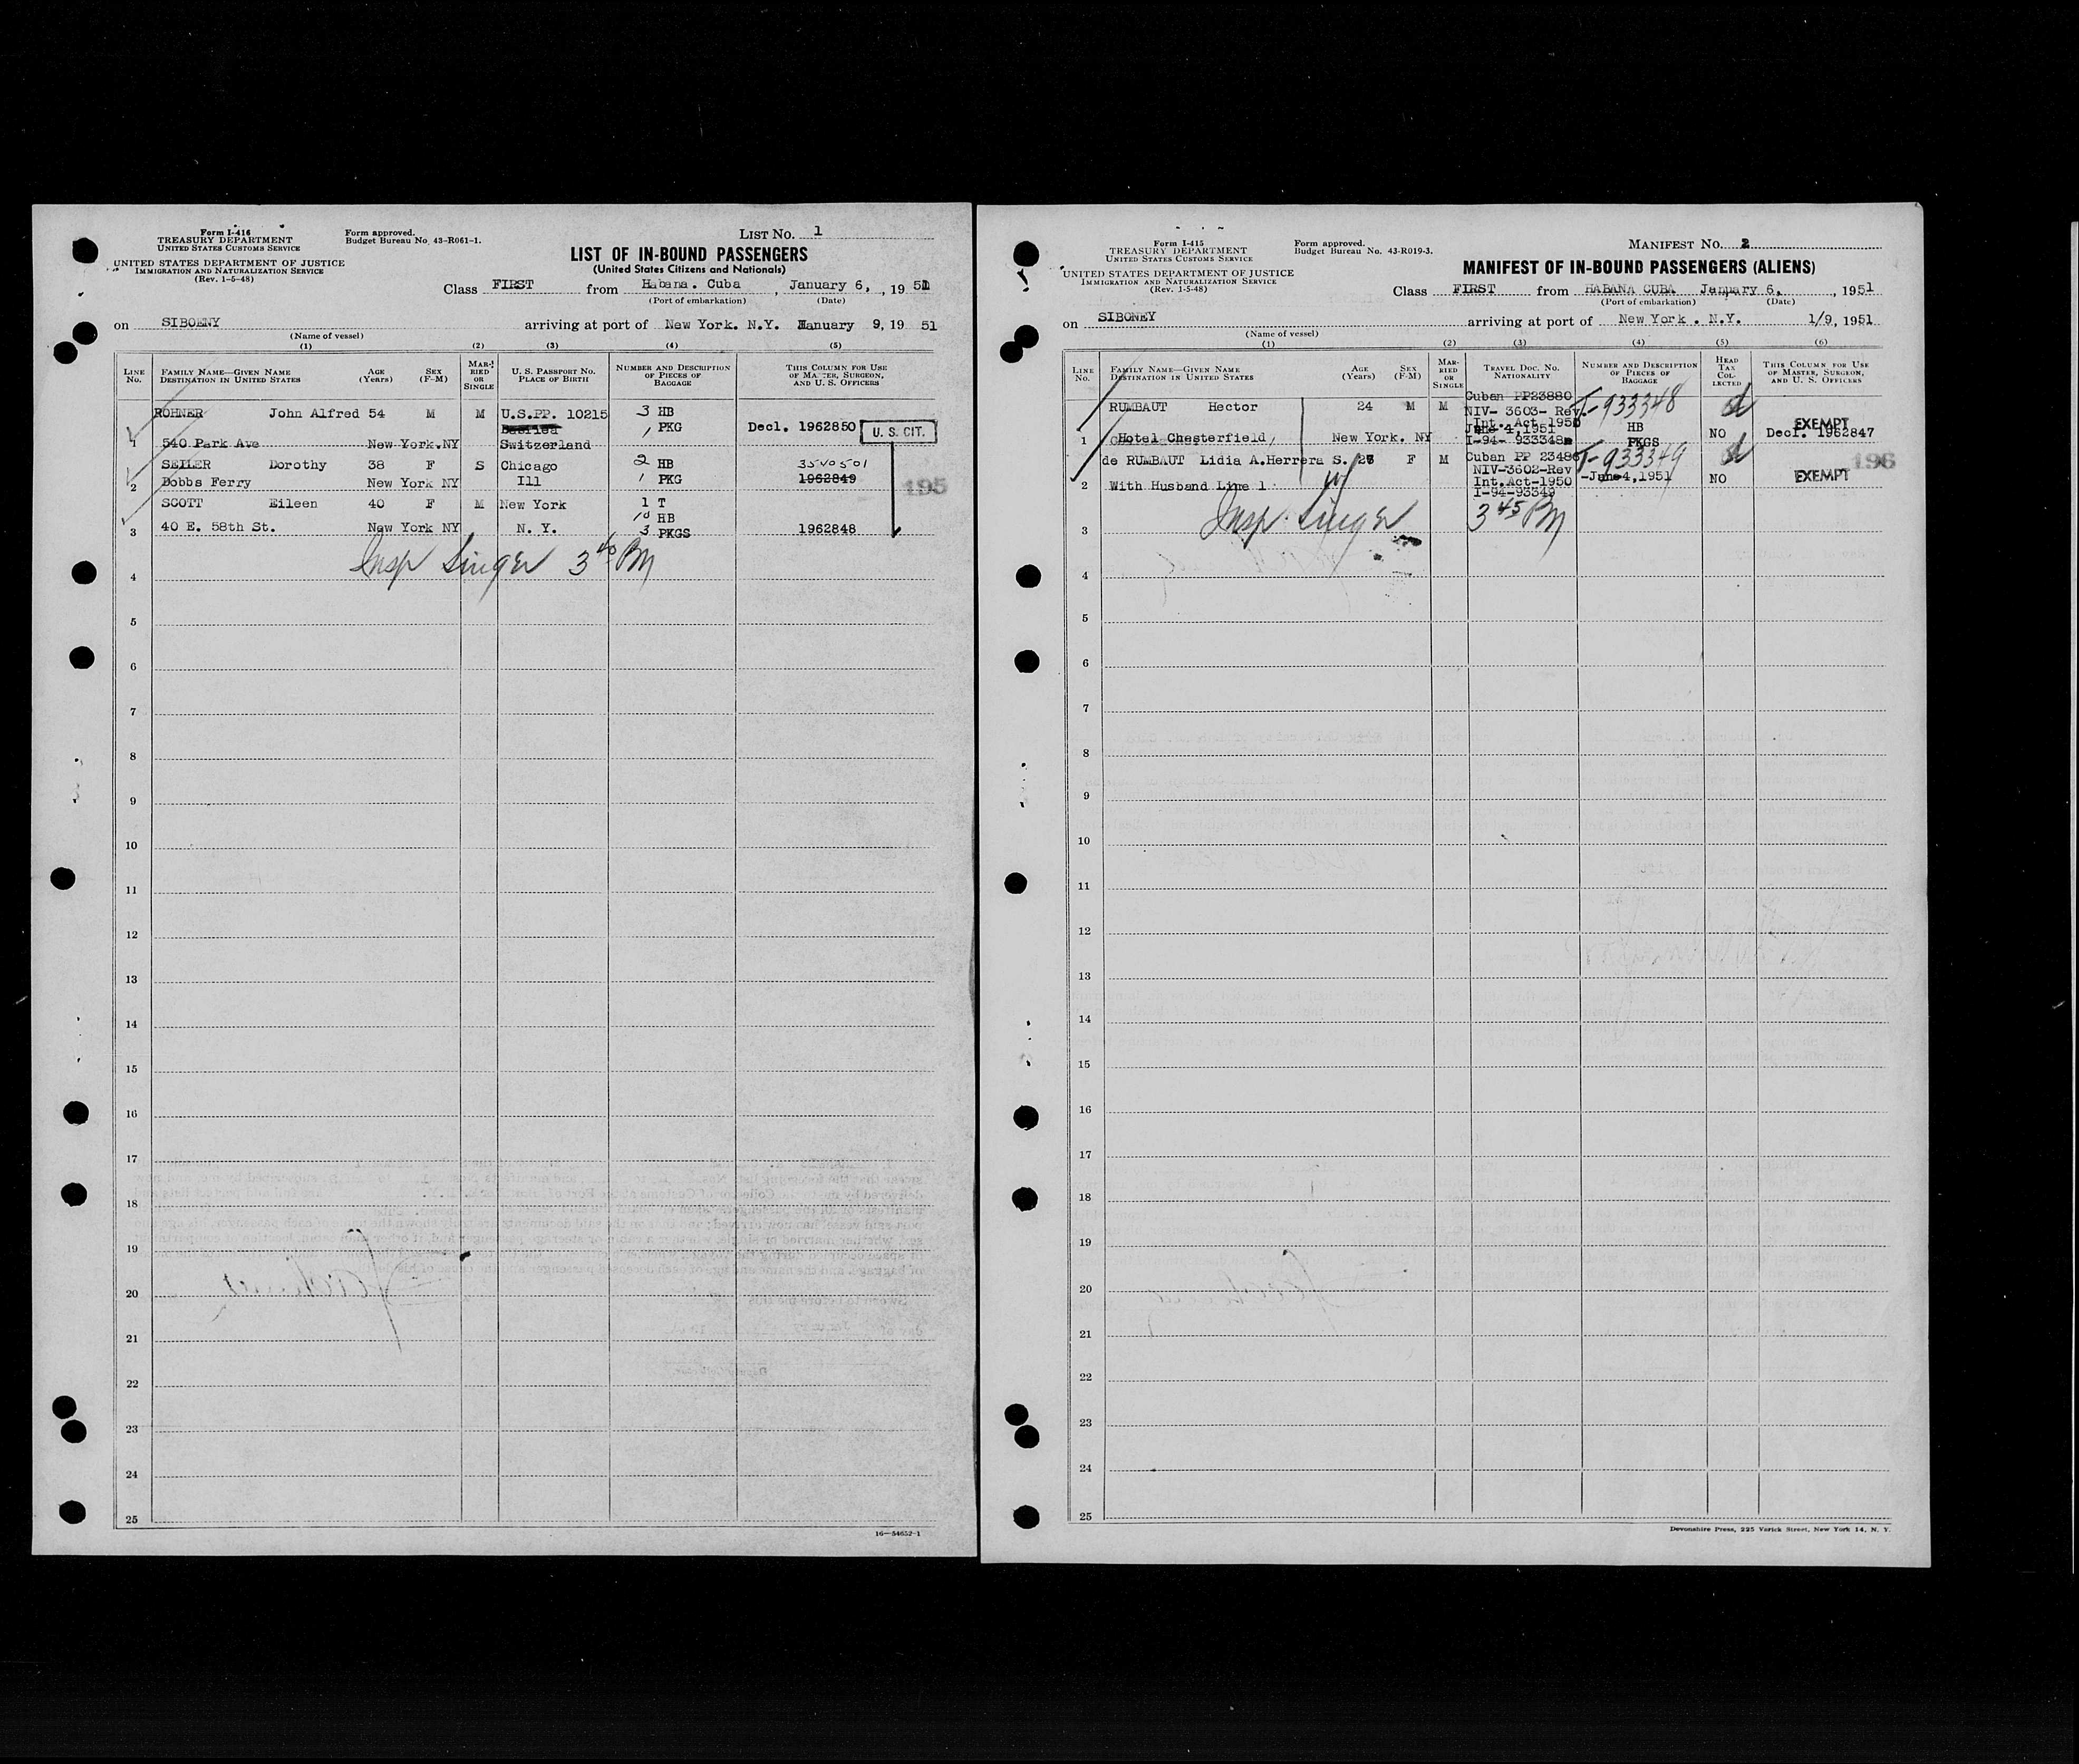 Form I-416
TREASURY DEPARTMENT
UNITED STATES CUSTOMS SERVICE
UNITED STATES DEPARTMENT OF JUSTICE
IMMIGRATION AND NATURALIZATION SERVICE
(Rev. 1-5-48)
Form approved.
Budget Bureau No. 43-R061-1.
LIST NO. 1
LIST OF IN-BOUND PASSENGERS
(United States Citizens and Nationals)
Class FIRST from Habana. Cuba , January 6, , 1951
(Port of embarkation) (Date)
on SIBOENY arriving at port of New York. N.Y. January 9, 19 51
(Name of vessel)
(1) (2) (3) (4) (5)
LINE NO. FAMILY NAME—GIVEN NAME DESTINATION IN UNITED STATES AGE (Years) SEX (F-M) MARRIED OR SINGLE U. S. PASSPORT NO. PLACE OF BIRTH NUMBER AND DESCRIPTION OF PIECES OF BAGGAGE THIS COLUMN FOR USE OF MASTER, SURGEON, AND U. S. OFFICERS
ROHNER John Alfred 54 M M U.S.PP. 10215 3 HB
Basilea 1 PKG Decl. 1962850 U. S. CIT.
1 540 Park Ave New York.NY Switzerland
SEILER Dorothy 38 F S Chicago 2 HB 3540501
2 Dobbs Ferry New York NY Ill 1 PKG 1962849
195
SCOTT Eileen 40 F M New York 1 T
10 HB
3 40 E. 58th St. New York NY N. Y. 3 PKGS 1962848
Insp Singer 3 40 PM
4
5
6
7
8
9
10
11
12
13
14
15
16
17
18
19
20
21
22
23
24
25
16—54652-1
Form I-415
TREASURY DEPARTMENT
UNITED STATES CUSTOMS SERVICE
UNITED STATES DEPARTMENT OF JUSTICE
IMMIGRATION AND NATURALIZATION SERVICE
(Rev. 1-5-48)
Form approved.
Budget Bureau No. 43-R019-3.
MANIFEST NO. 2
MANIFEST OF IN-BOUND PASSENGERS (ALIENS)
Class FIRST from HABANA CUBA January 6, , 1951
(Port of embarkation) (Date)
on SIBONEY arriving at port of New York . N.Y. 1/9, 1951
(Name of vessel)
(1) (2) (3) (4) (5) (6)
LINE NO. FAMILY NAME—GIVEN NAME DESTINATION IN UNITED STATES AGE (Years) SEX (F-M) MARRIED OR SINGLE TRAVEL DOC. NO. NATIONALITY NUMBER AND DESCRIPTION OF PIECES OF BAGGAGE HEAD TAX COLLECTED THIS COLUMN FOR USE OF MASTER, SURGEON, AND U. S. OFFICERS
Cuban PP23880
RUMBAUT Hector 24 M M NIV- 3603- Rev. T-933348
Int. Act 1950 EXEMPT
June 4,1951 HB
1 Hotel Chesterfield, New York. NY I-94- 933348 PKGS NO Decl. 1962847
de RUMBAUT Lidia A.Herrera S. F M Cuban PP 23486 T-933349
196
NIV-3602-Rev
2 With Husband Line 1 Int.Act-1950 -June4,1951 NO EXEMPT
I-94-93349
3 Insp. Singer 3 45 PM
4
5
6
7
8
9
10
11
12
13
14
15
16
17
18
19
20
21
22
23
24
25
Devonshire Press, 225 Varick Street, New York 14, N. Y.